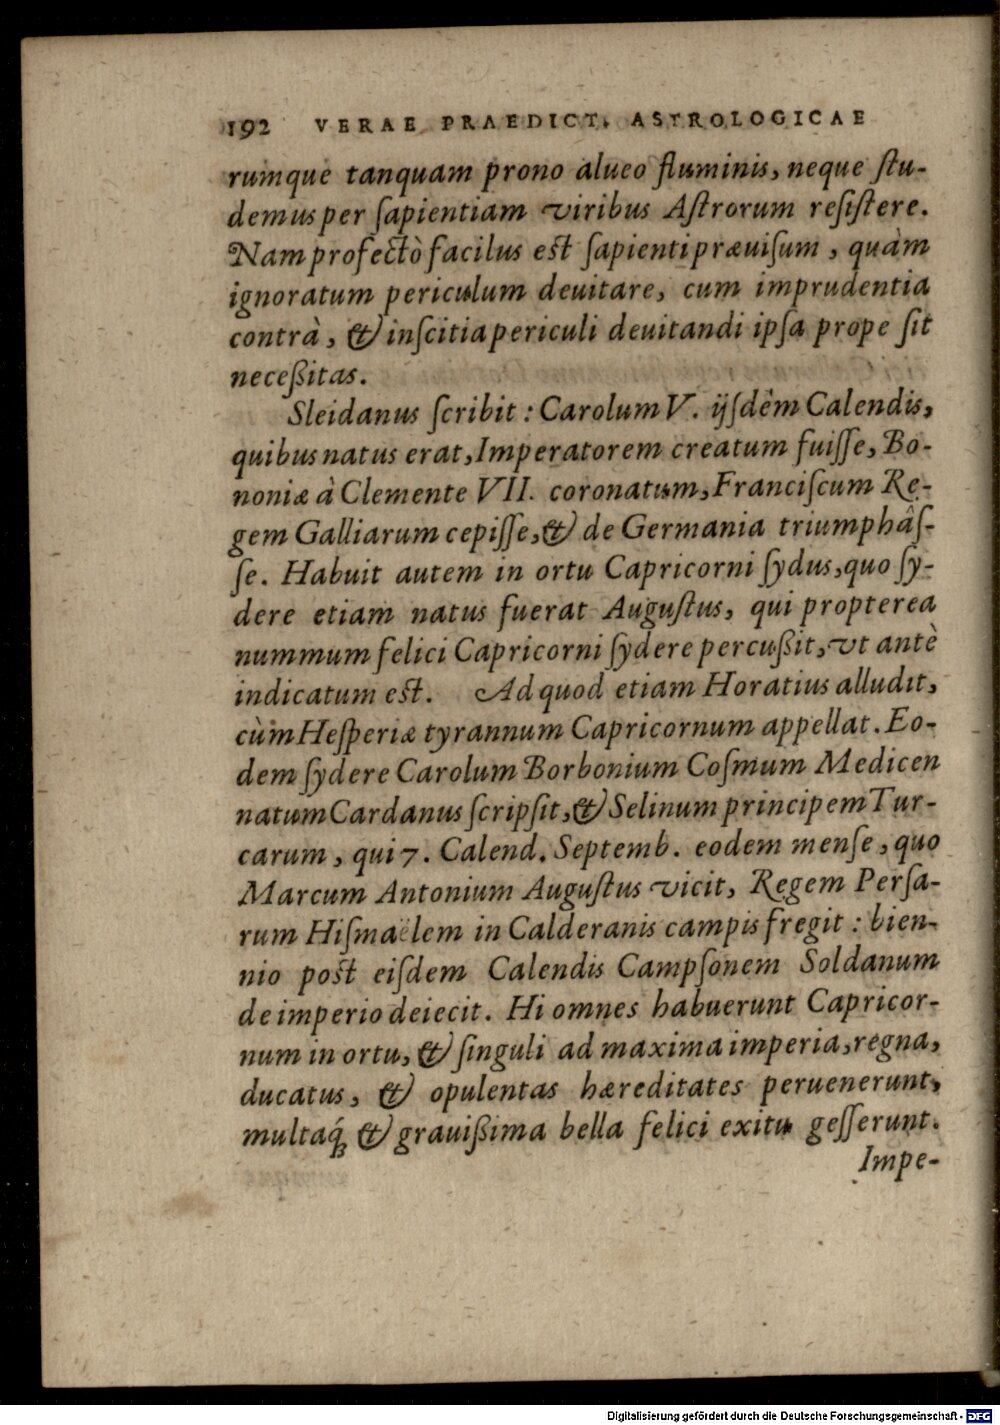 192 VERAE PRAEDICT. ASTROLOGICAE
rumque tanquam prono alueo fluminis, neque ſtu-
demus per ſapientiam viribus Aſtrorum reſiſtere.
Nam profectò facilus eſt ſapienti præuiſum, quàm
ignoratum periculum deuitare, cum imprudentia
contrà, & inſcitia periculi deuitandi ipſa prope ſit
neceßitas.
Sleidanus ſcribit: Carolum V. ijſdêm Calendis,
quibus natus erat, Imperatorem creatum fuiſſe, Bo-
noniæ à Clemente VII. coronatum, Franciſcum Re-
gem Galliarum cepiſſe, & de Germania triumphâſ-
ſe. Habuit autem in ortu Capricorni ſydus, quo ſy-
dere etiam natus fuerat Auguſtus, qui propterea
nummum felici Capricorni ſydere percußit, vt antè
indicatum eſt. Ad quod etiam Horatius alludit,
cùm Heſperiæ tyrannum Capricornum appellat. Eo-
dem ſydere Carolum Borbonium Coſmum Medicen
natum Cardanus ſcripſit, & Selinum principem Tur-
carum, qui 7. Calend. Septemb. eodem menſe, quo
Marcum Antonium Auguſtus vicit, Regem Perſa-
rum Hiſmaëlem in Calderanis campis fregit: bien-
nio poſt eiſdem Calendis Campſonem Soldanum
de imperio deiecit. Hi omnes habuerunt Capricor-
num in ortu, & ſinguli ad maxima imperia, regna,
ducatus, & opulentas hæreditates peruenerunt,
multaq́; & grauißima bella felici exitu geſſerunt.
Impe-
Digitalisierung gefördert durch die Deutsche Forschungsgemeinschaft - DFG